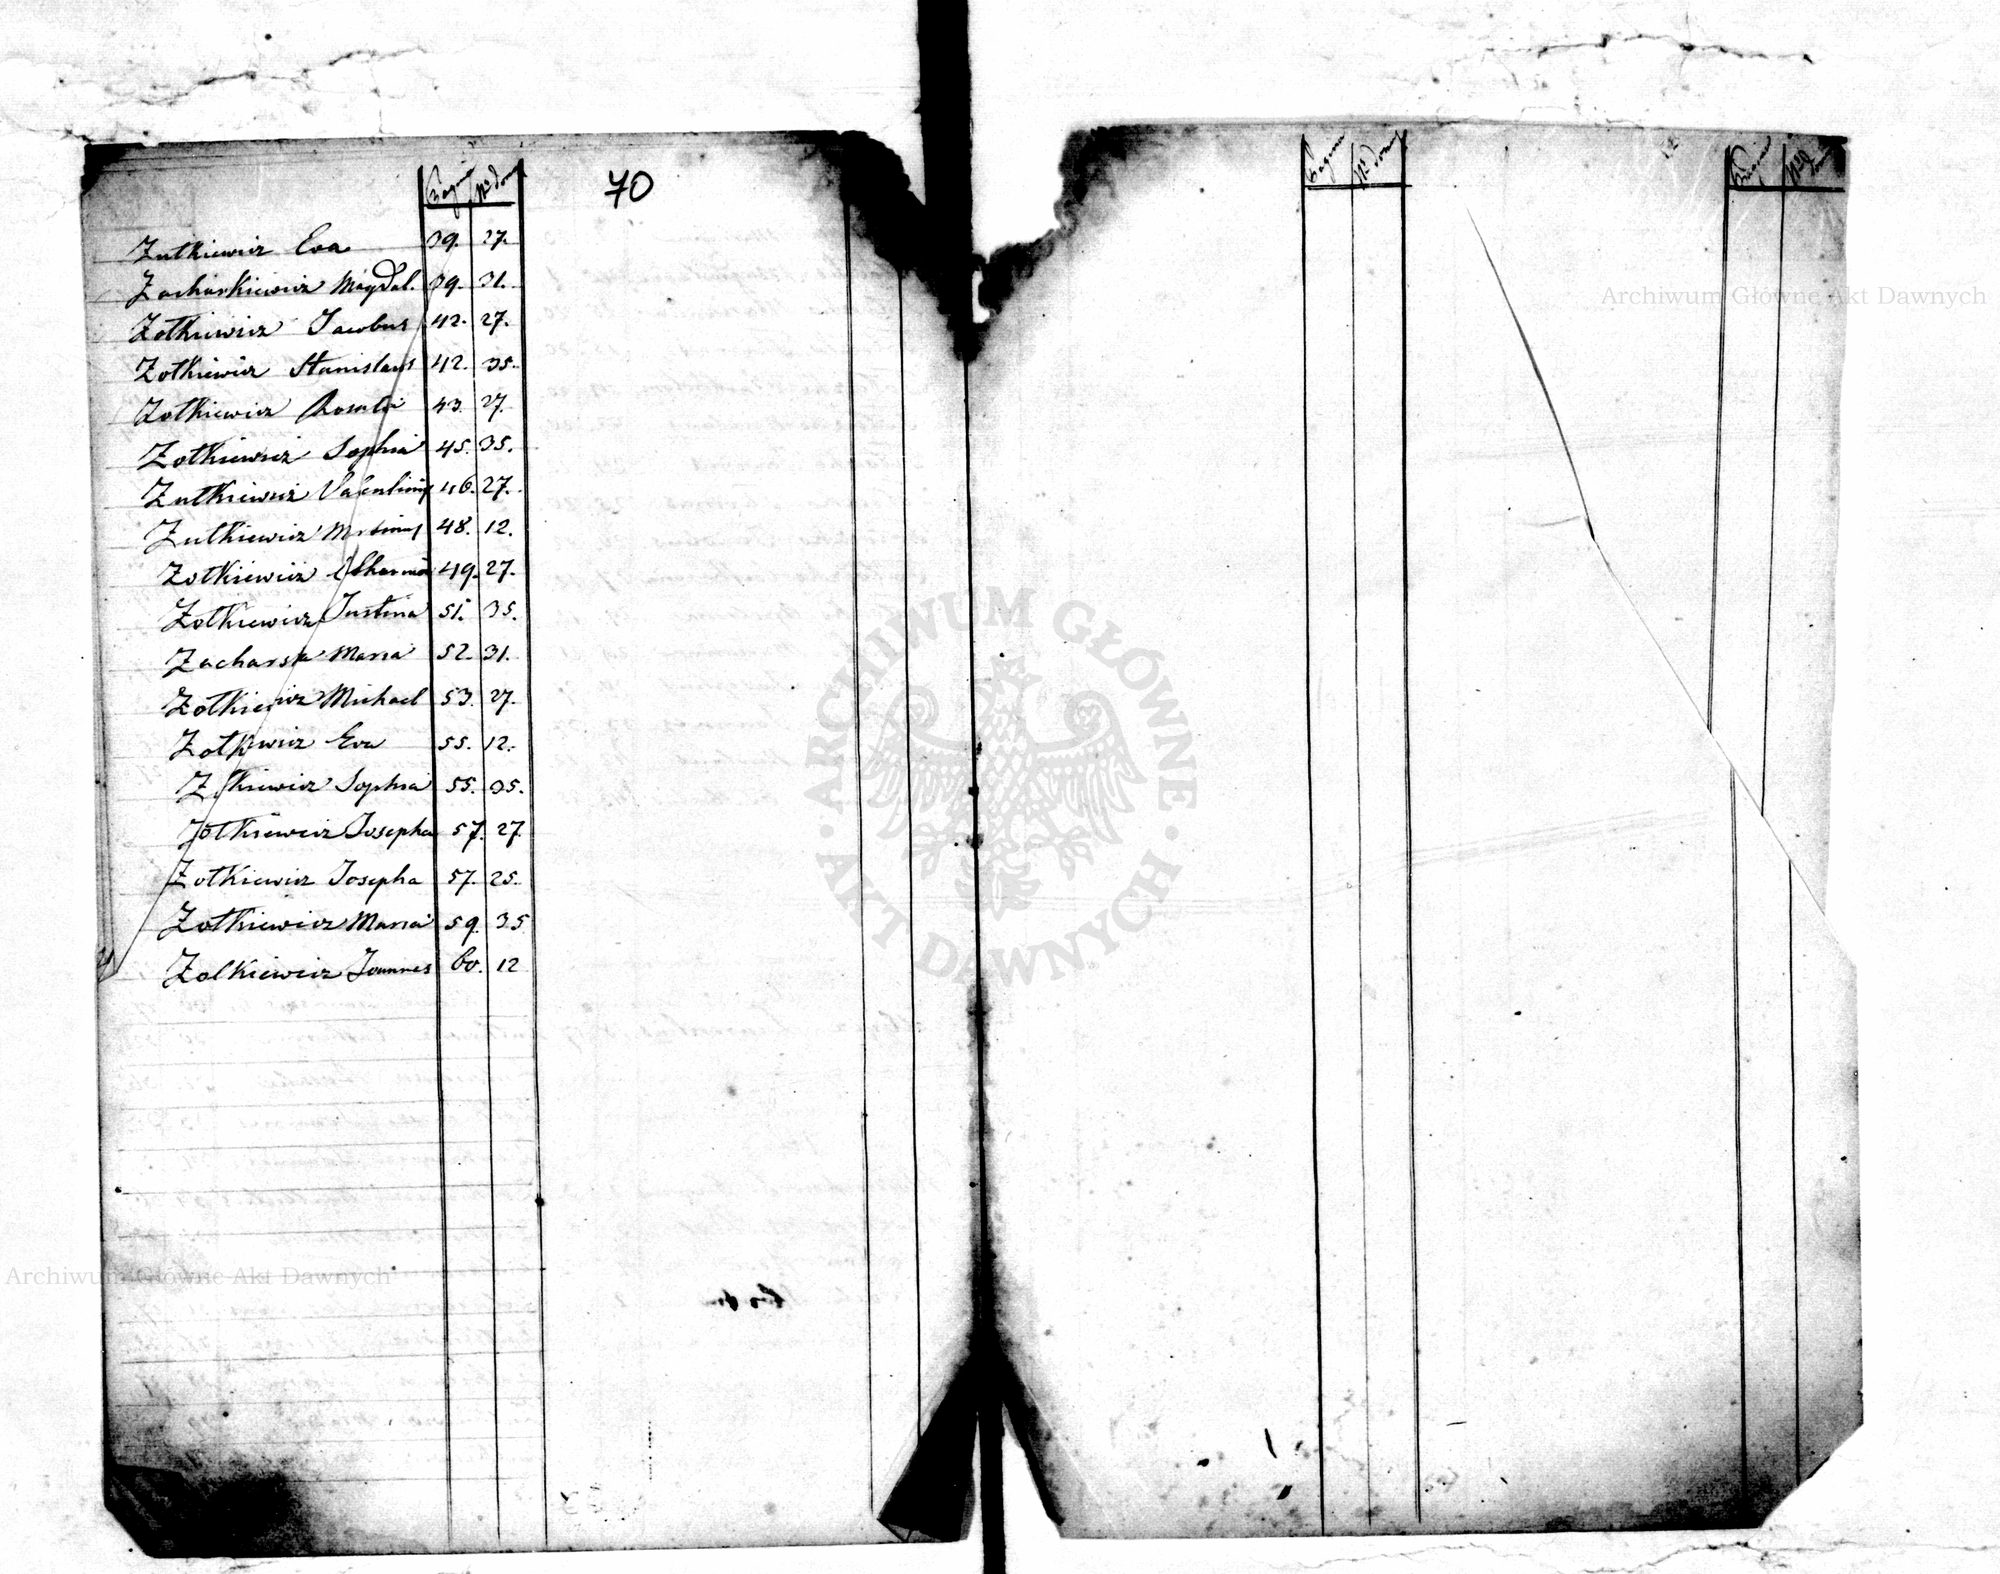 Pagina Nr domu
70
Zutkiewicz Eva 39. 27.
Zacharkiewicz Magdal. 39. 31.
Zotkiewicz Jacobus 42. 27.
Zotkiewicz Stanislaus 42. 35.
Zotkiewicz Rosalia 43. 27.
Zotkiewicz Sophia 45. 35.
Zutkiewicz Valentinus 46. 27.
Zutkiewicz 48. 12.
Zotkiewicz 49. 27.
Zotkiewicz Justina 51. 35.
Zacharska Maria 52. 31.
Zotkiewicz Michael 53. 27.
Zotkiewicz Eva 55. 12.
Zotkiewicz Sophia 55. 35.
Zotkiewicz Josepha 57. 27
Zotkiewicz Josepha 57. 25.
Zotkiewicz Maria 59. 35
Zolkiewicz Joannes 60. 12
Pagina Nr domu
Pagina Nro domu
Archiwum Główne Akt Dawnych
ARCHIWUM GŁÓWNE AKT DAWNYCH
Archiwum Główne Akt Dawnych